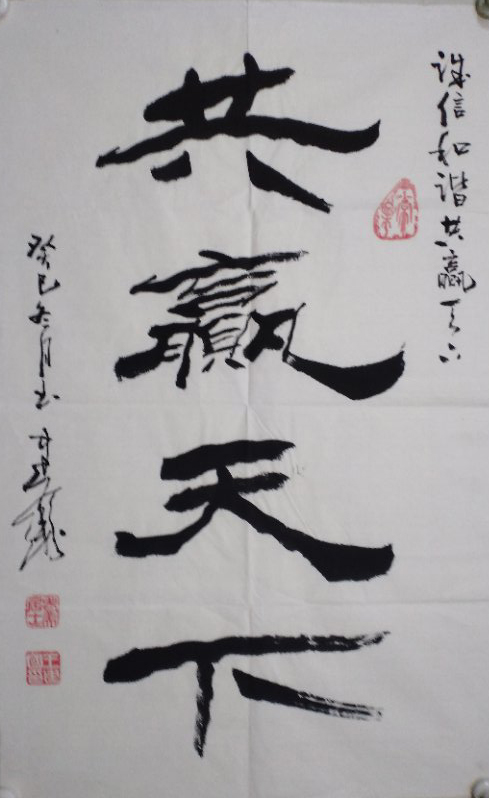 诚信和谐共赢天下
共赢天下
癸巳冬月书